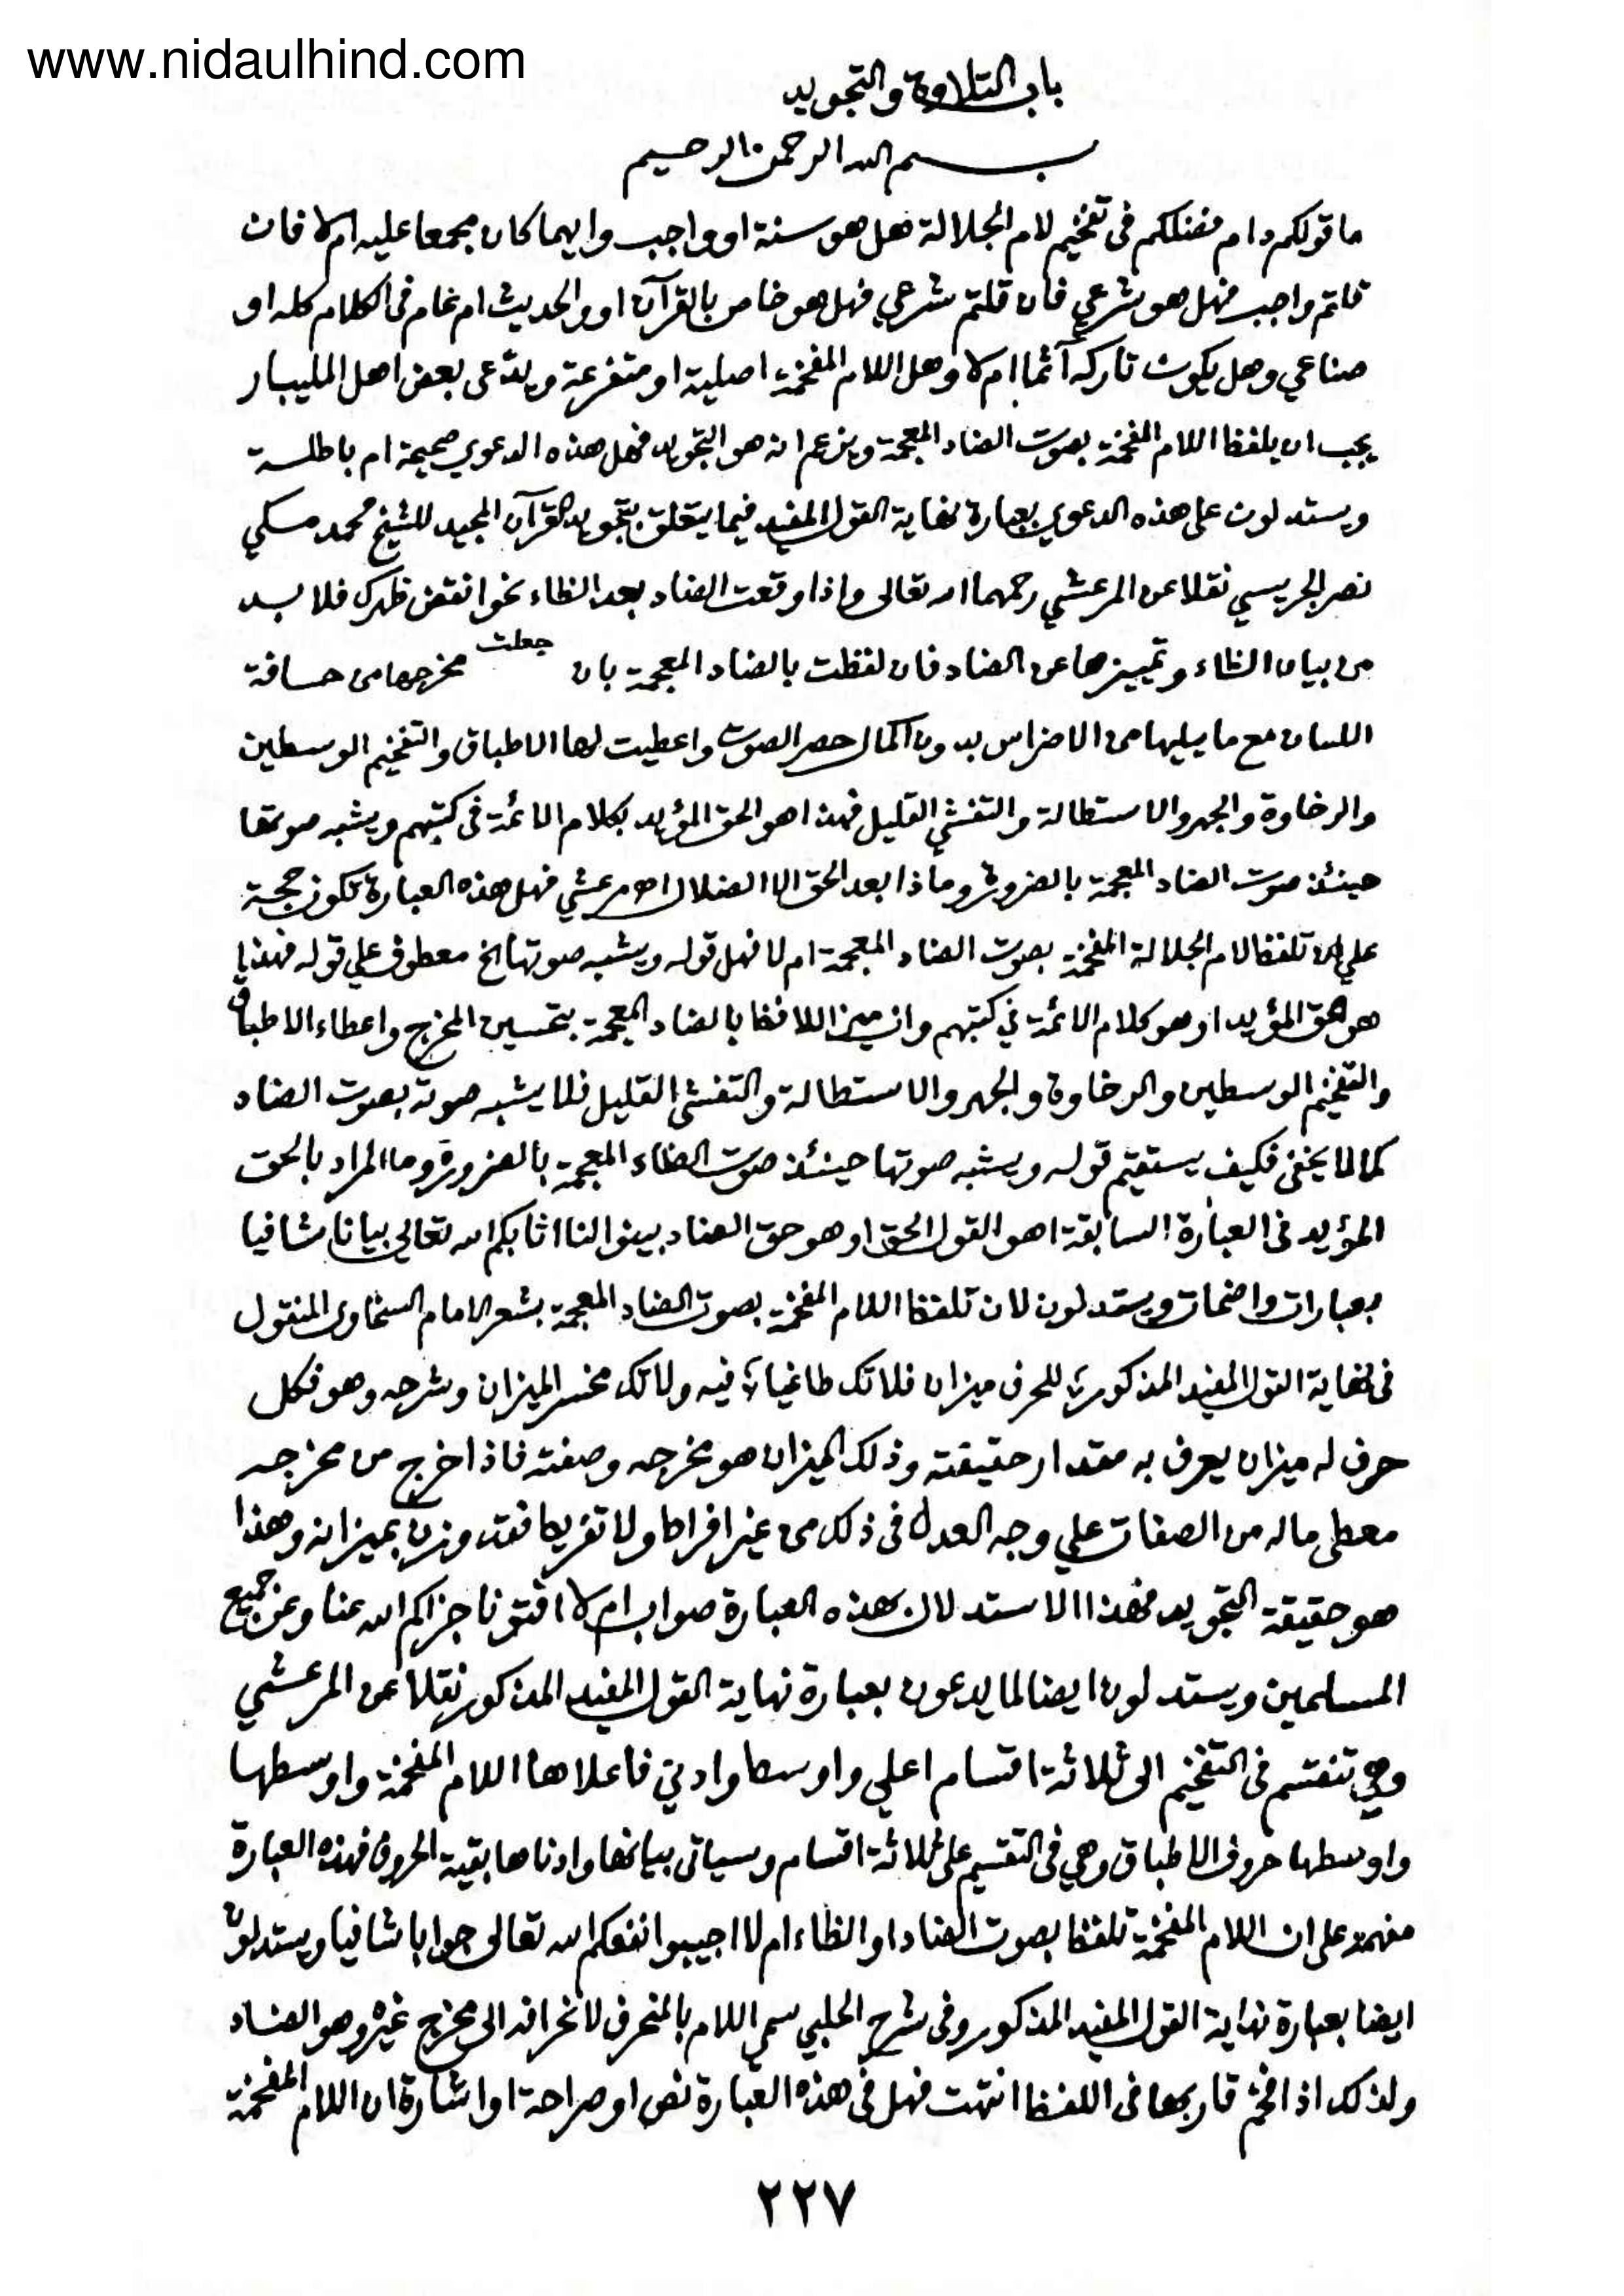 www.nidaulhind.com
باب التلاوة والتجويد
بسم الله الرحمن الرحيم
ما قولكم دام فضلكم فى تفخيم لام الجلالة هل هو سنة او واجب وايهما كان مجمعا عليه ام لا فان
قلتم واجب فهل هو شرعي فان قلتم شرعي فهل هو خاص بالقرآن او والحديث ام عام فى الكلام كله او
صناعي وهل يكون تاركه آثما ام لا وهل اللام المفخمة اصلية او متفرعة ويدّعى بعض اهل المليبار
يجب ان يلفظ اللام المفخمة بصوت الضاد المعجمة ويزعم انه هو التجويد فهل هذه الدعوي صحيحة ام باطلة
ويستدلون على هذه الدعوي بعبارة نهاية القول المفيد فيما يتعلق بتجويد القرآن المجيد للشيخ محمد مكي
نصر الجريسي نقلا عن المرعشي رحمهما الله تعالى واذا وقعت الضاد بعد الظاء نحو انقض ظهرك فلا بد
من بيان الظاء وتمييزها عن الضاد فان لفظت بالضاد المعجمة بان جعلت مخرجها من حافة
اللسان مع ما يليها من الاضراس بدون اكمال حصر الصوت واعطيت لها الاطباق والتفخيم الوسطين
والرخاوة والجهر والاستطالة والتفشي القليل فهذا هو الحق المؤيد بكلام الائمة فى كتبهم ويشبه صوتها
حينئذ صوت الضاد المعجمة بالضرورة وماذا بعد الحق الا الضلال اه مرعشي فهل هذه العبارة تكون حجة
على ان تلفظ لام الجلالة المفخمة بصوت الضاد المعجمة ام لا فهل قوله ويشبه صوتها الخ معطوف علي قوله فهذا
هو الحق المؤيد او هو كلام الائمة في كتبهم وان ميز اللافظ بالضاد المعجمة بتحسين المخرج واعطاء الاطباق
والتفخيم الوسطين والرخاوة والجهر والاستطالة والتفشى القليل فلا يشبه صوته بصوت الضاد
كما لا يخفى فكيف يستقيم قوله ويشبه صوتها حينئذ صوت الظاء المعجمة بالضرورة وما المراد بالحق
المؤيد فى العبارة السابقة اهو القول الحق او هو حق الضاد بينوا لنا اثابكم الله تعالى بيانا شافيا
بعبارات واضحات ويستدلون لان تلفظ اللام المفخمة بصوت الضاد المعجمة بشعر الامام السخاوى المنقول
فى نهاية القول المفيد المذكور للحرف ميزان فلا تك طاغيا فيه ولا تك مخسر الميزان وشرحه وهو فكل
حرف له ميزان يعرف به مقدار حقيقته وذلك الميزان هو مخرجه وصفته فاذا خرج من مخرجه
معطى ماله من الصفات علي وجه العدل فى ذلك من غير افراط ولا تفريط فقد وزن بميزانه وهذا
هو حقيقة التجويد فهذا الاستدلال بهذه العبارة صواب ام لا افتونا جزاكم الله عنا وعن جميع
المسلمين ويستدلون ايضا لما يدعون بعبارة نهاية القول المفيد المذكور نقلا عن المرعشي
وهي تنقسم فى التفخيم الى ثلاثة اقسام اعلي واوسط وادني فاعلاها اللام المفخمة واوسطها
واوسطها حروف الاطباق وهي فى التقسيم على ثلاثة اقسام وسياتى بيانها وادناها بقية الحروف فهذه العبارة
على ان اللام المفخمة تلفظ بصوت الضاد او الظاء ام لا اجيبوا نفعكم الله تعالى جوابا شافيا ويستدلون
ايضا بعبارة نهاية القول المفيد المذكور وفى شرح الحلبي سمي اللام بالمنحرف لانحرافه الى مخرج غيره وهو الضاد
ولذلك اذا فخم قاربها فى اللفظ انتهت فهل فى هذه العبارة نص او صراحة او اشارة ان اللام المفخمة
٢٢٧